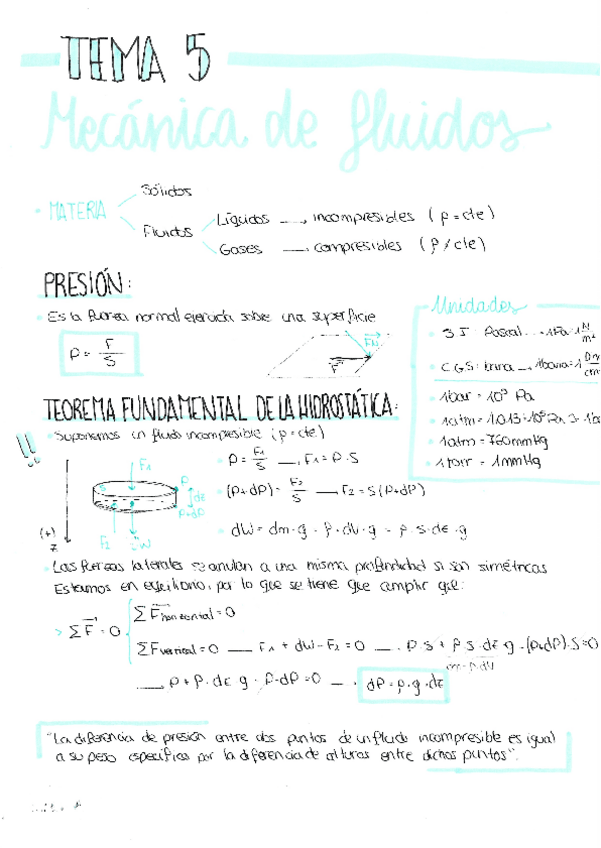 TEMA 5
Mecánica de fluidos
MATERIA
Sólidos
Fluidos
Líquidos → incompresibles (ρ = cte)
Gases → compresibles (ρ ≠ cte)
PRESIÓN:
Es la fuerza normal ejercida sobre una superficie
P = F/S
FN
F
Unidades
S.I. Pascal → 1Pa = 1 N/m²
C.G.S: baria → 1baria = 1
1bar = 10⁵ Pa
1atm = 1.013·10⁵ Pa
1atm = 760mmHg
1torr = 1mmHg
TEOREMA FUNDAMENTAL DE LA HIDROSTÁTICA:
!!
Suponemos un fluido incompresible (ρ = cte)
F1
S
P
dz
P+dP
F2
W
(+)
z
P = F1/S → F1 = P·S
(P+dP) = F2/S → F2 = S(P+dP)
dW = dm·g = ρ·dV·g = ρ·S·dz·g
Las fuerzas laterales se anulan a una misma profundidad si son simétricas
Estamos en equilibrio, por lo que se tiene que cumplir que:
> ΣF = 0
ΣF horizontal = 0
ΣF vertical = 0 → F1 + dW - F2 = 0 → P·S + ρ·S·dz·g - (P+dP)·S = 0
→ P + ρ·dz·g - P - dP = 0 → dP = ρ·g·dz
"La diferencia de presión entre dos puntos de un fluido incompresible es igual
a su peso específico por la diferencia de alturas entre dichos puntos".